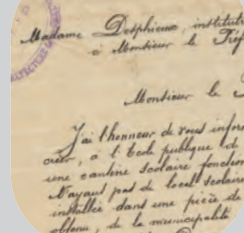 Madame Desphieux institut
à Monsieur le Préf
Monsieur le
J'ai l'honneur de vous infor
créer, à l'école publique de
une cantine scolaire fonction
N'ayant pas de local scolaire
installée dans une pièce de
obtenu, de la municipalité